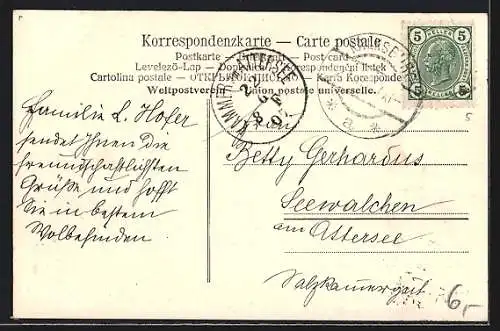 Korrespondenzkarte — Carte postale
Postkarte Post-card
Levelező-Lap — Dopisnice
Cartolina postale — ОТКРЫТОЕ ПИСЬМО — Karta Korespondencyjna
Weltpostverein — Union postale universelle.
KAMMER
5 5
HELLER
5 5
Familie L. Hofer
sendet Ihnen die
freundschaftlichsten
Grüße und hofft
Sie in bestem
Wolbefinden
Betty Gerhardus
Seewalchen
am Attersee
Salzkammergut
5
6,-